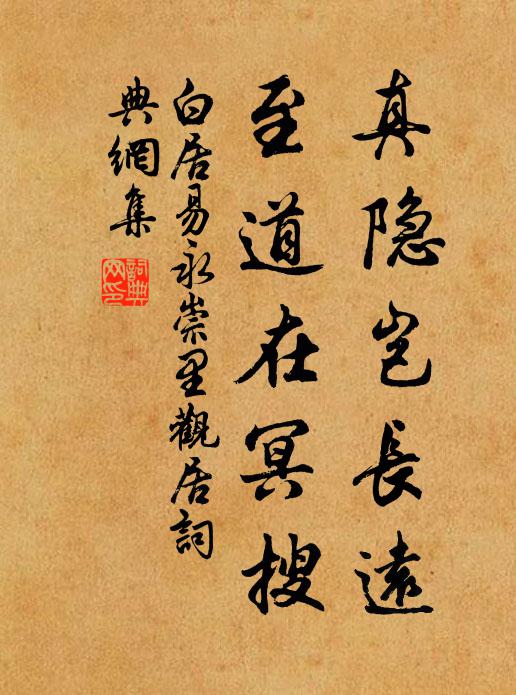 真隐岂長遠
至道在冥搜
白居易永崇里觀居詞
典網集
詞典
网印